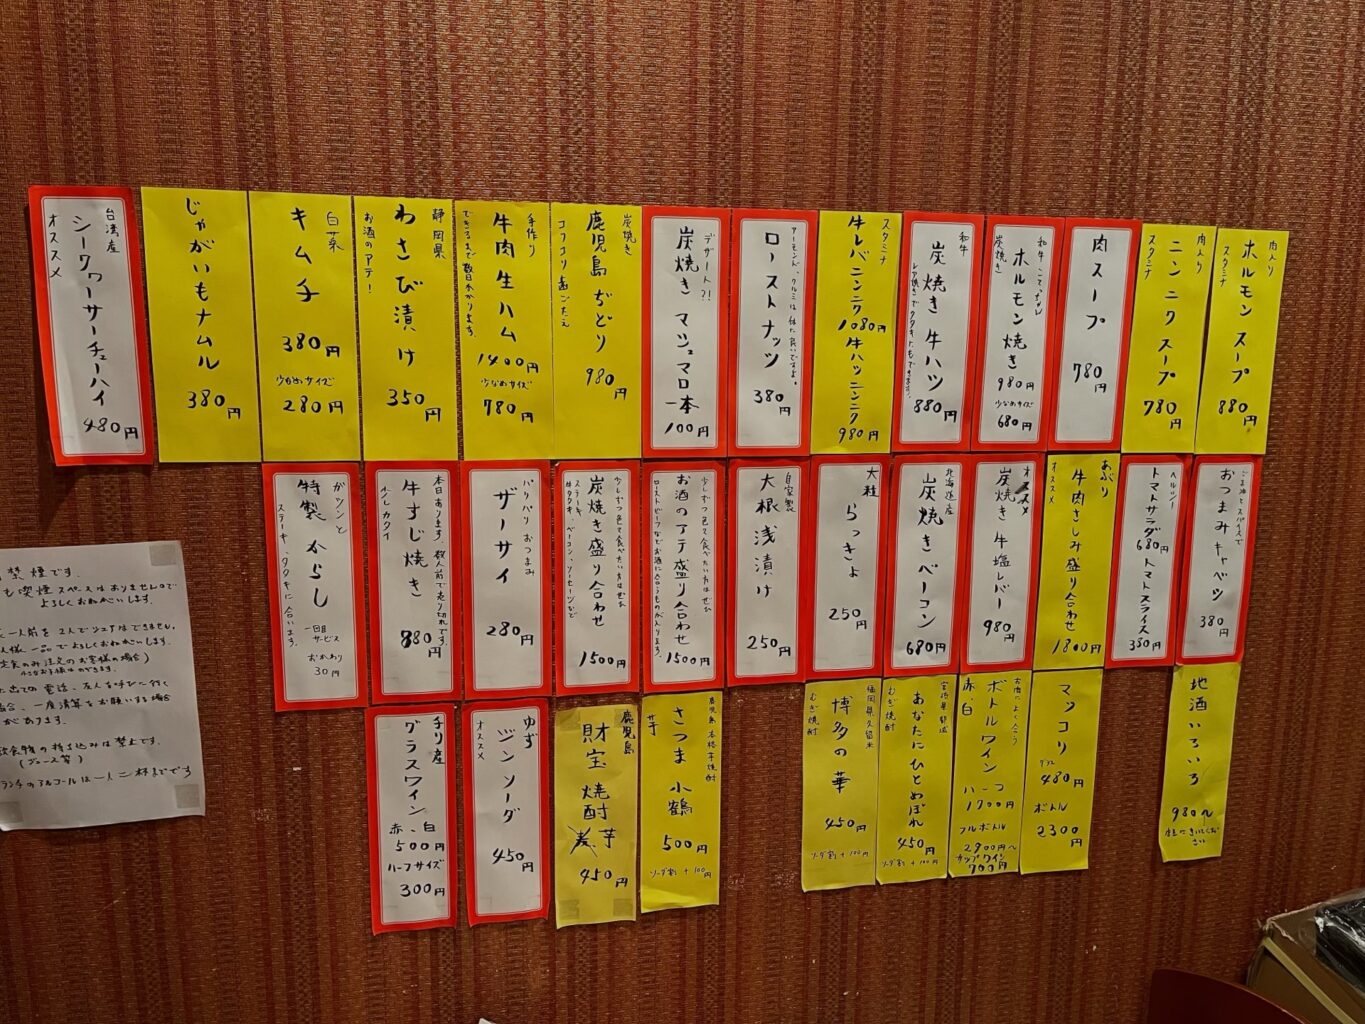 肉入り
スタミナ
ホルモン スープ
880円
肉入り
スタミナ
ニンニクスープ
780円
肉スープ
780円
和牛こてっちゃん
炭焼き
ホルモン焼き
980円
少なめサイズ
680円
和牛
炭焼き 牛ハツ
880円
スタミナ
牛レバニンニク
1080円
牛ハツニンニク
980円
ローストナッツ
380円
デザート?!
炭焼き マシュマロ
一本
100円
炭焼き
鹿児島 ぢどり
コリコリ歯ごたえ
980円
手作り
牛肉生ハム
できるまで数日かかります。
1400円
少なめサイズ
780円
静岡県
わさび漬け
お酒のアテ!
350円
白菜
キムチ
380円
少なめサイズ
280円
じゃがいもナムル
380円
台湾産
シークワーサーチューハイ
オススメ
480円
ごま油とスパイスで
おつまみ キャベツ
380円
ヘルシー
トマトサラダ
680円
トマトスライス
380円
あぶり
牛肉さしみ盛り合わせ
オススメ
1800円
オススメ
炭焼き 牛塩レバー
980円
北海道産
炭焼きベーコン
680円
大粒
らっきょ
250円
自家製
大根浅漬け
250円
少しずつ色々食べたい方はぜひ
お酒のアテ盛り合わせ
ローストビーフなどお酒に合うものが入ります。
1500円
少しずつ色々食べたい方はぜひ
炭焼き盛り合わせ
ステーキ、
牛タタキ、ベーコン、ソーセージなど
1500円
パリパリ おつまみ
ザーサイ
280円
本日あります。数人前で売り切れです。
牛すじ焼き
少しカタイ
880円
ガツンと
特製 からし
ステーキ、タタキに合います。
一回目
サービス
おかわり
30円
地酒いろいろ
980〜
マッコリ
グラス
480円
ボトル
2300円
お肉によく合う
ボトルワイン
赤 白
ハーフ
1700円
フルボトル
2900円〜
カップワイン
700円
宮崎県都城
あなたにひとめぼれ
むぎ焼酎
450円
ソーダ割 +100円
福岡県久留米
博多の華
むぎ焼酎
450円
ソーダ割 +100円
鹿児島 本格芋焼酎
さつま 小鶴
芋
500円
ソーダ割 +100円
鹿児島
財宝 焼酎
芋
450円
ゆず
ジン ソーダ
オススメ
450円
チリ産
グラスワイン
赤、白
500円
ハーフサイズ
300円
禁煙です。
も喫煙スペースはありませんので
よろしくおねがいします。
一人前を2人でシェアはできません。
人様一品でよろしくおねがいします。
定食のみ注文のお客様の場合)
出ての電話、友人を呼びに行く
場合、一度清算をお願いする場合
があります。
飲食物の持ち込みは禁止です。
(ジュース等)
ランチのアルコールは一人二杯までです